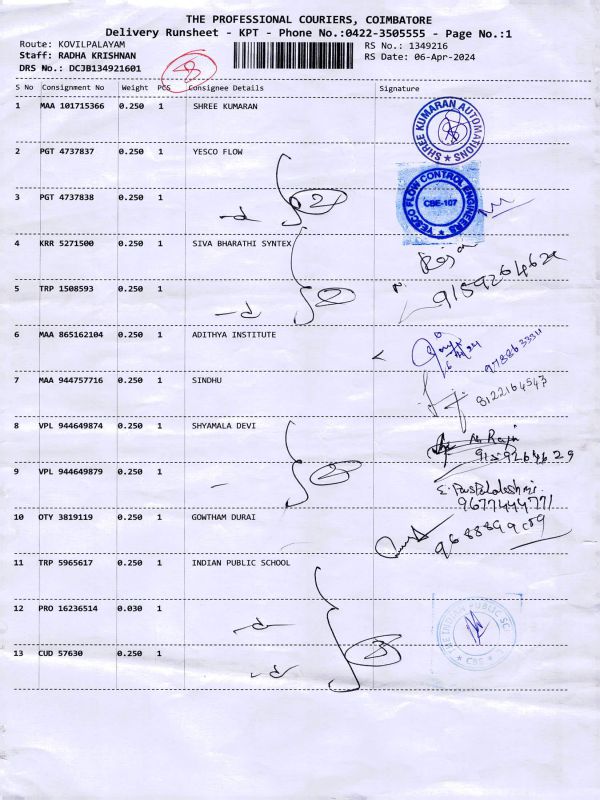 THE PROFESSIONAL COURIERS, COIMBATORE
Delivery Runsheet - KPT - Phone No.:0422-3505555 - Page No.:1
Route: KOVILPALAYAM RS No.: 1349216
Staff: RADHA KRISHNAN RS Date: 06-Apr-2024
DRS No.: DCJB134921601 8
S No Consignment No Weight PCS Consignee Details Signature
1 MAA 101715366 0.250 1 SHREE KUMARAN
SHREE KUMARAN AUTOMATIONS
2 PGT 4737837 0.250 1 YESCO FLOW
YESCO FLOW CONTROL ENGINEERS
CBE-107
3 PGT 4737838 0.250 1
2
4 KRR 5271500 0.250 1 SIVA BHARATHI SYNTEX
5 TRP 1508593 0.250 1
2
6 MAA 865162104 0.250 1 ADITHYA INSTITUTE
7 MAA 944757716 0.250 1 SINDHU
8122164543
8 VPL 944649874 0.250 1 SHYAMALA DEVI
9159264629
9 VPL 944649879 0.250 1
2
9677444771
10 OTY 3819119 0.250 1 GOWTHAM DURAI
11 TRP 5965617 0.250 1 INDIAN PUBLIC SCHOOL
12 PRO 16236514 0.030 1
THE INDIAN PUBLIC SC
CBE
13 CUD 57630 0.250 1
3